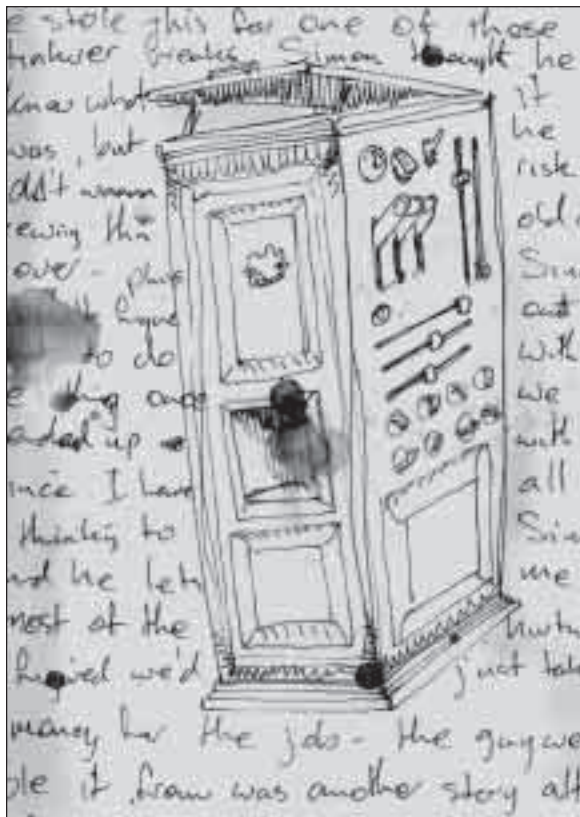 e stole this for one of those
tinkver breaks. Simon thought he
know what it
was, but he
dn't wanna risk
rewing thin old
over - plus Sim
figure out
to do with
e thing once we
ended up with
ince I have all
thinking to Sim
nd he lets me
most of the
figured we'd just take
money for the job - the guy we
ole it from was another story alt